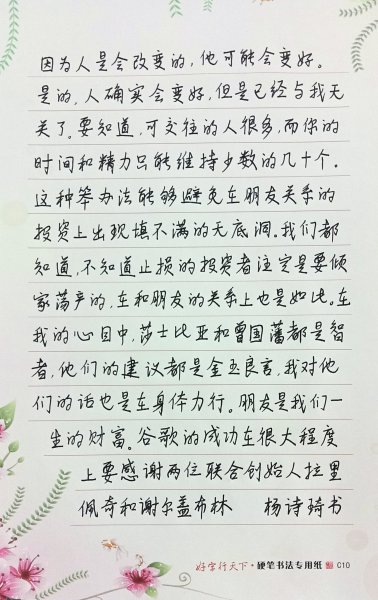 因为人是会改变的，他可能会变好。
是的，人确实会变好，但是已经与我无
关了。要知道，可交往的人很多，而你的
时间和精力只能维持少数的几十个.
这种笨办法能够避免在朋友关系的
投资上出现填不满的无底洞。我们都
知道，不知道止损的投资者注定是要倾
家荡产的，在和朋友的关系上也是如此。在
我的心目中，莎士比亚和曾国藩都是智
者，他们的建议都是金玉良言，我对他
们的话也是在身体力行。朋友是我们一
生的财富。谷歌的成功在很大程度
上要感谢两位联合创始人拉里
佩奇和谢尔盖布林 杨诗琦书
好字行天下·硬笔书法专用纸 C10